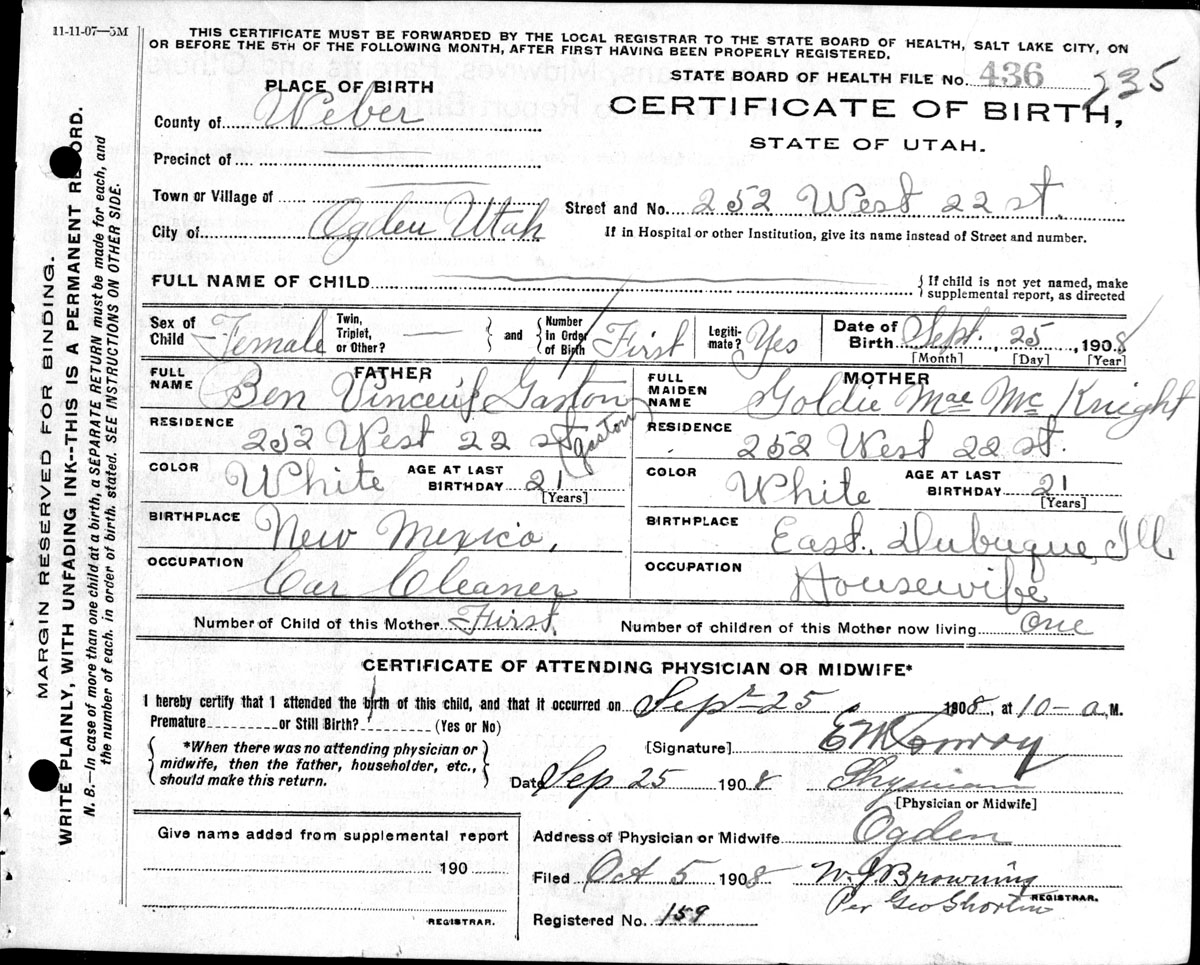 11-11-07—5M
THIS CERTIFICATE MUST BE FORWARDED BY THE LOCAL REGISTRAR TO THE STATE BOARD OF HEALTH, SALT LAKE CITY, ON
OR BEFORE THE 5TH OF THE FOLLOWING MONTH, AFTER FIRST HAVING BEEN PROPERLY REGISTERED.
STATE BOARD OF HEALTH FILE No. 436 235
PLACE OF BIRTH
CERTIFICATE OF BIRTH,
STATE OF UTAH.
County of Weber
Precinct of
Town or Village of
Street and No. 252 West 22 st.
City of Ogden Utah
If in Hospital or other Institution, give its name instead of Street and number.
FULL NAME OF CHILD { If child is not yet named, make supplemental report, as directed
Sex of Child Female Twin, Triplet, or Other? — } and { Number In Order of Birth First Legiti-mate? Yes Date of Birth Sept. 25, 1908
[Month] [Day] [Year]
FATHER
FULL NAME Ben Gaston
MOTHER
FULL MAIDEN NAME Goldie Mae Mc Knight
RESIDENCE 252 West 22 st. Gaston
RESIDENCE 252 West 22 st.
COLOR White AGE AT LAST BIRTHDAY 21 [Years]
COLOR White AGE AT LAST BIRTHDAY 21 [Years]
BIRTHPLACE New Mexico,
BIRTHPLACE East. Dubuque, Ill.
OCCUPATION Car Cleaner
OCCUPATION Housewife
Number of Child of this Mother First Number of children of this Mother now living One
CERTIFICATE OF ATTENDING PHYSICIAN OR MIDWIFE*
I hereby certify that I attended the birth of this child, and that it occurred on Sept-25 1908, at 10- a.M.
Premature or Still Birth? (Yes or No)
[Signature]
{ *When there was no attending physician or
midwife, then the father, householder, etc.,
should make this return. }
Date Sep 25 1908 Physician
[Physician or Midwife]
Give name added from supplemental report
190
REGISTRAR.
Address of Physician or Midwife Ogden
Filed Oct 5 1908 W. J Browning
REGISTRAR.
Per Geo
Registered No. 159
MARGIN RESERVED FOR BINDING.
WRITE PLAINLY, WITH UNFADING INK--THIS IS A PERMANENT RECORD.
N. B.—In case of more than one child at a birth, a SEPARATE RETURN must be made for each, and
the number of each, in order of birth, stated. SEE INSTRUCTIONS ON OTHER SIDE.